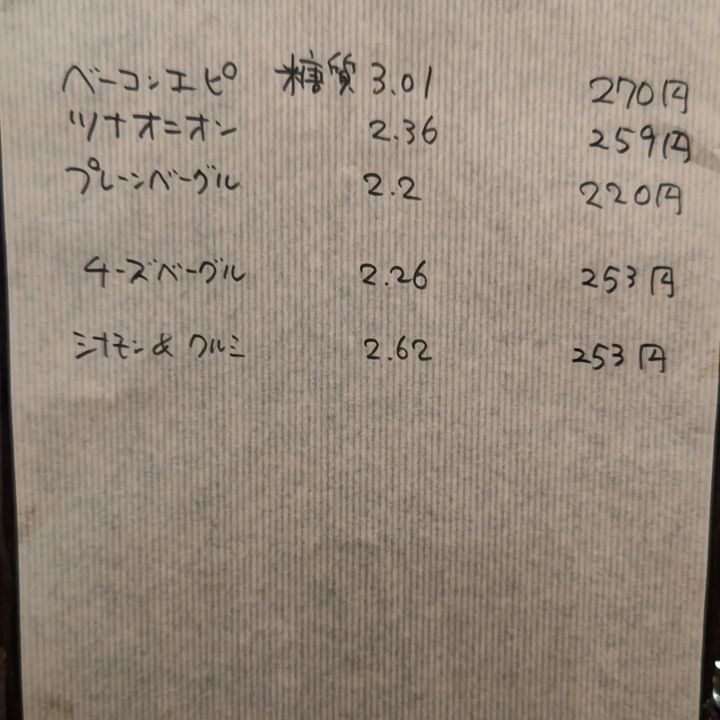 ベーコンエピ 糖質 3.01 270円
ツナオニオン 2.36 259円
プレーンベーグル 2.2 220円
チーズベーグル 2.26 253円
シナモン&クルミ 2.62 253円